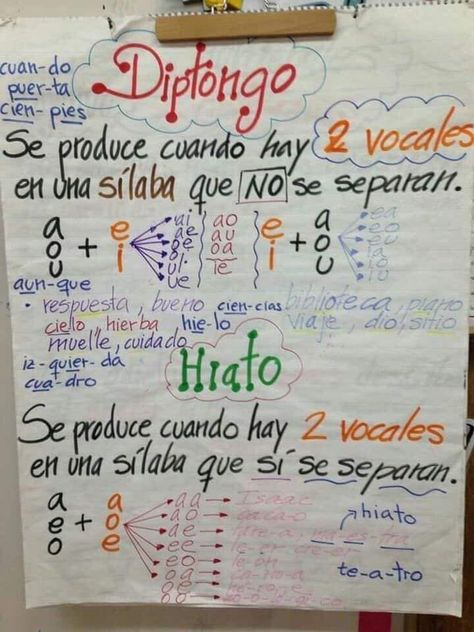 cuan-do
puer-ta
cien-pies
Diptongo
Se produce cuando hay 2 vocales
en una sílaba que NO se separan.
a
o
u
+
e
i
ai
ae
oi
ui
ue
ao
au
oa
ie
e
i
+
a
o
u
ea
eo
eu
ia
io
iu
aun-que
• respuesta, bueno
cien-cias
biblioteca, piano
ciello, hierba
hie-lo
viaje, dio, sitio
muelle, cuidado
iz-quier-da
cua-dro
Hiato
Se produce cuando hay 2 vocales
en una sílaba que sí se separan.
a
e
o
+
a
o
e
aa → Isaac
ao → caca-o
ae → ma-es-tra
ee → le-er cre-er
eo → le-on
oa → ca-no-a
hiato
te-a-tro